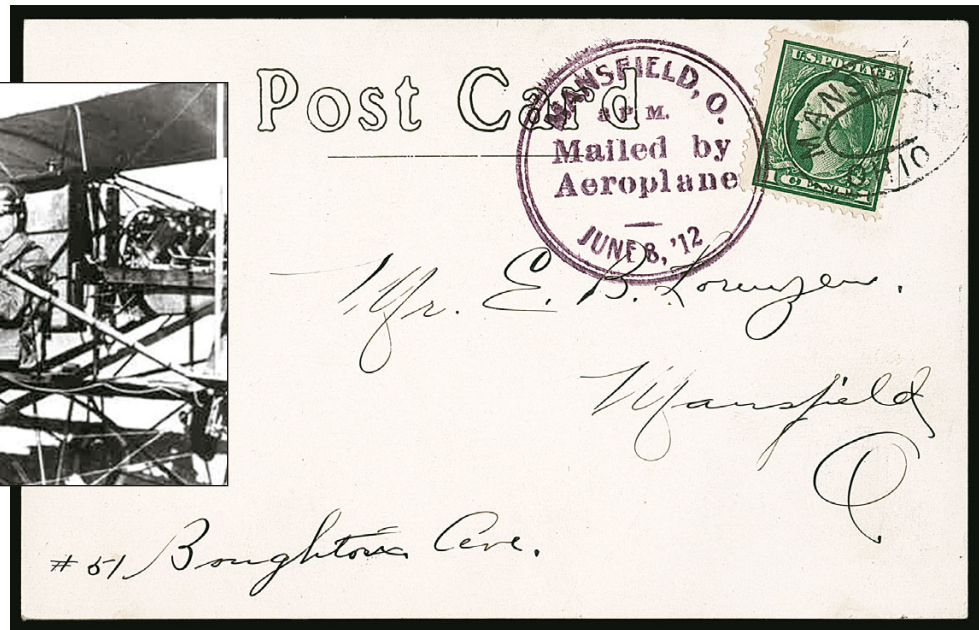 Post Card
MANSFIELD, O.
P. M.
Mailed by
Aeroplane
JUNE 8, '12
U.S. POSTAGE
CENT
MANS
OHIO
Mr. E. B. Lorenzen.
Mansfield
O
# 51 Boughton Ave.